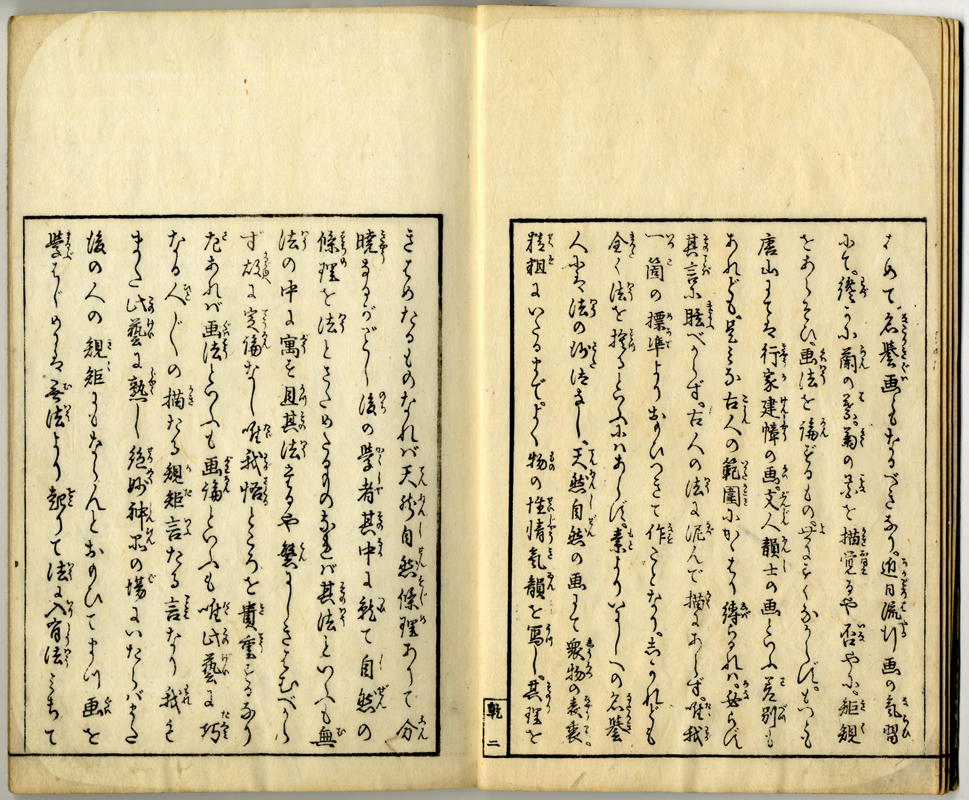 はめて。名誉画ともなるべきなり。近日流行画の気習
にて。纔かに蘭の葉。菊の花を描覚るや否や。に。矩規
をあらそひ。画法を論ずるもの少からず。もつとも
唐山にては行家建幛の画。文人韻士の画といふ差別も
あれども。是みな古人の範圍にかゝはり縛らるれバ。必らず
其言に眩べからず。古人の法に泥んで描にあらず。唯我
一箇の標準よりおもひつきて作ことなり。しかれども
全く法を捨るといふにハあらず。素よりいにしへの名誉
人にも法の沙汰なし。天然自然の画にて衆物の表裏
精粗にいたるまで。よく物の性情氣韻を写し。其理を
きはめたるものなれバ天然自然條理ありて分
暁なるがごとし後の學者其中に就て自然の
條理を法とさだめたるものなれバ其法といへども無
法の中に寓を且其法立るや繁にしてさだむべから
ず故に実論なし唯我悟ところを貴重するなり
たゞあれバ画法といふも画論といふも唯此藝に巧
なる人〲の描たる規矩言たる言なり我も
また此藝に熟し絶妙神品の場にいたらバまた
後の人の規矩にもならんとおもひてまづ画を
學はじめにハ無法より起りて法に入有法にみちて
乾 二